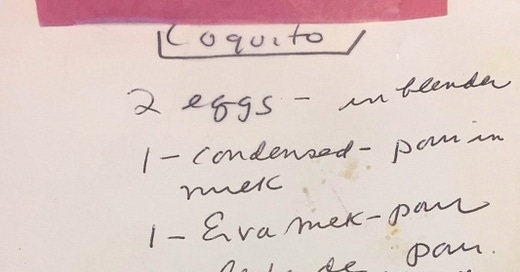 Coquito
2 eggs - in blender
1 - condensed - pour in
milk
1 - Eva milk - pour
pour.